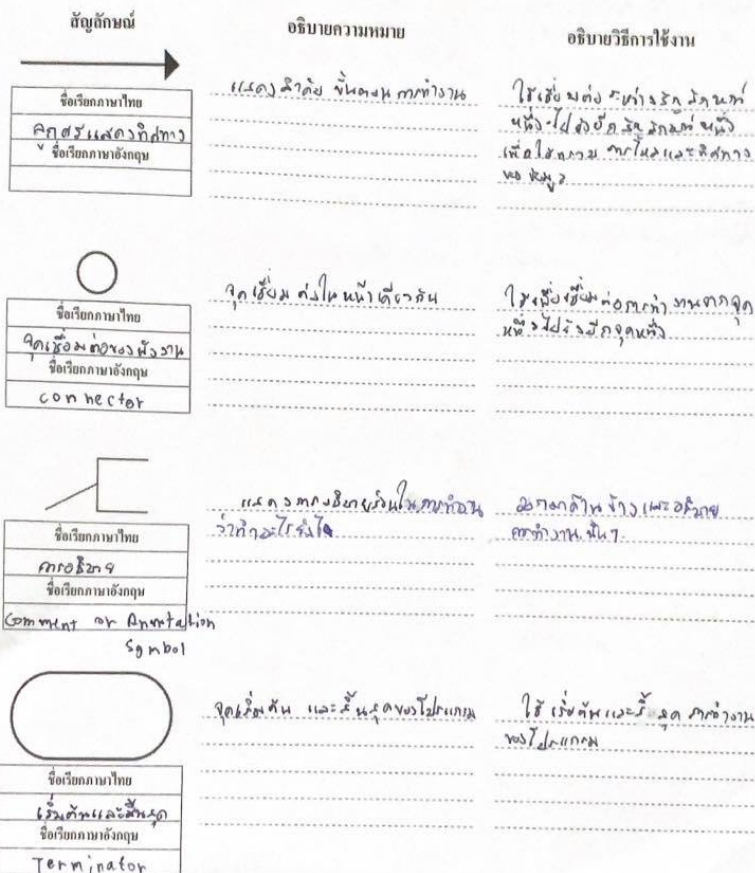 สัญลักษณ์
อธิบายความหมาย
อธิบายวิธีการใช้งาน
ชื่อเรียกภาษาไทย
ลูกศรแสดงทิศทาง
ชื่อเรียกภาษาอังกฤษ
แสดงลำดับ ขั้นตอน การทำงาน
ใช้เชื่อมต่อ ระหว่างสัญลักษณ์
หนึ่งไปยังอีกสัญลักษณ์หนึ่ง
เพื่อให้ทราม การไหลและทิศทาง
ข้อมูล
ชื่อเรียกภาษาไทย
จุดเชื่อมต่อของผังงาน
ชื่อเรียกภาษาอังกฤษ
connector
จุดเชื่อม ต่อในหน้าเดียวกัน
ใช้เพื่อเชื่อมต่อการทำงานจากจุด
หนึ่งไปยังอีกจุดหนึ่ง
ชื่อเรียกภาษาไทย
การอธิบาย
ชื่อเรียกภาษาอังกฤษ
Comment or Annotation
Symbol
แสดงการอธิบายส่วนในการทำงาน
ว่าทำอะไรยังไง
ด้านข้างและอธิบาย
การทำงานนั้นๆ
ชื่อเรียกภาษาไทย
เริ่มต้นและสิ้นสุด
ชื่อเรียกภาษาอังกฤษ
Terminator
จุดเริ่มต้น และสิ้นสุดของโปรแกรม
ใช้ เริ่มต้นและสิ้นสุด การทำงาน
ของโปรแกรม